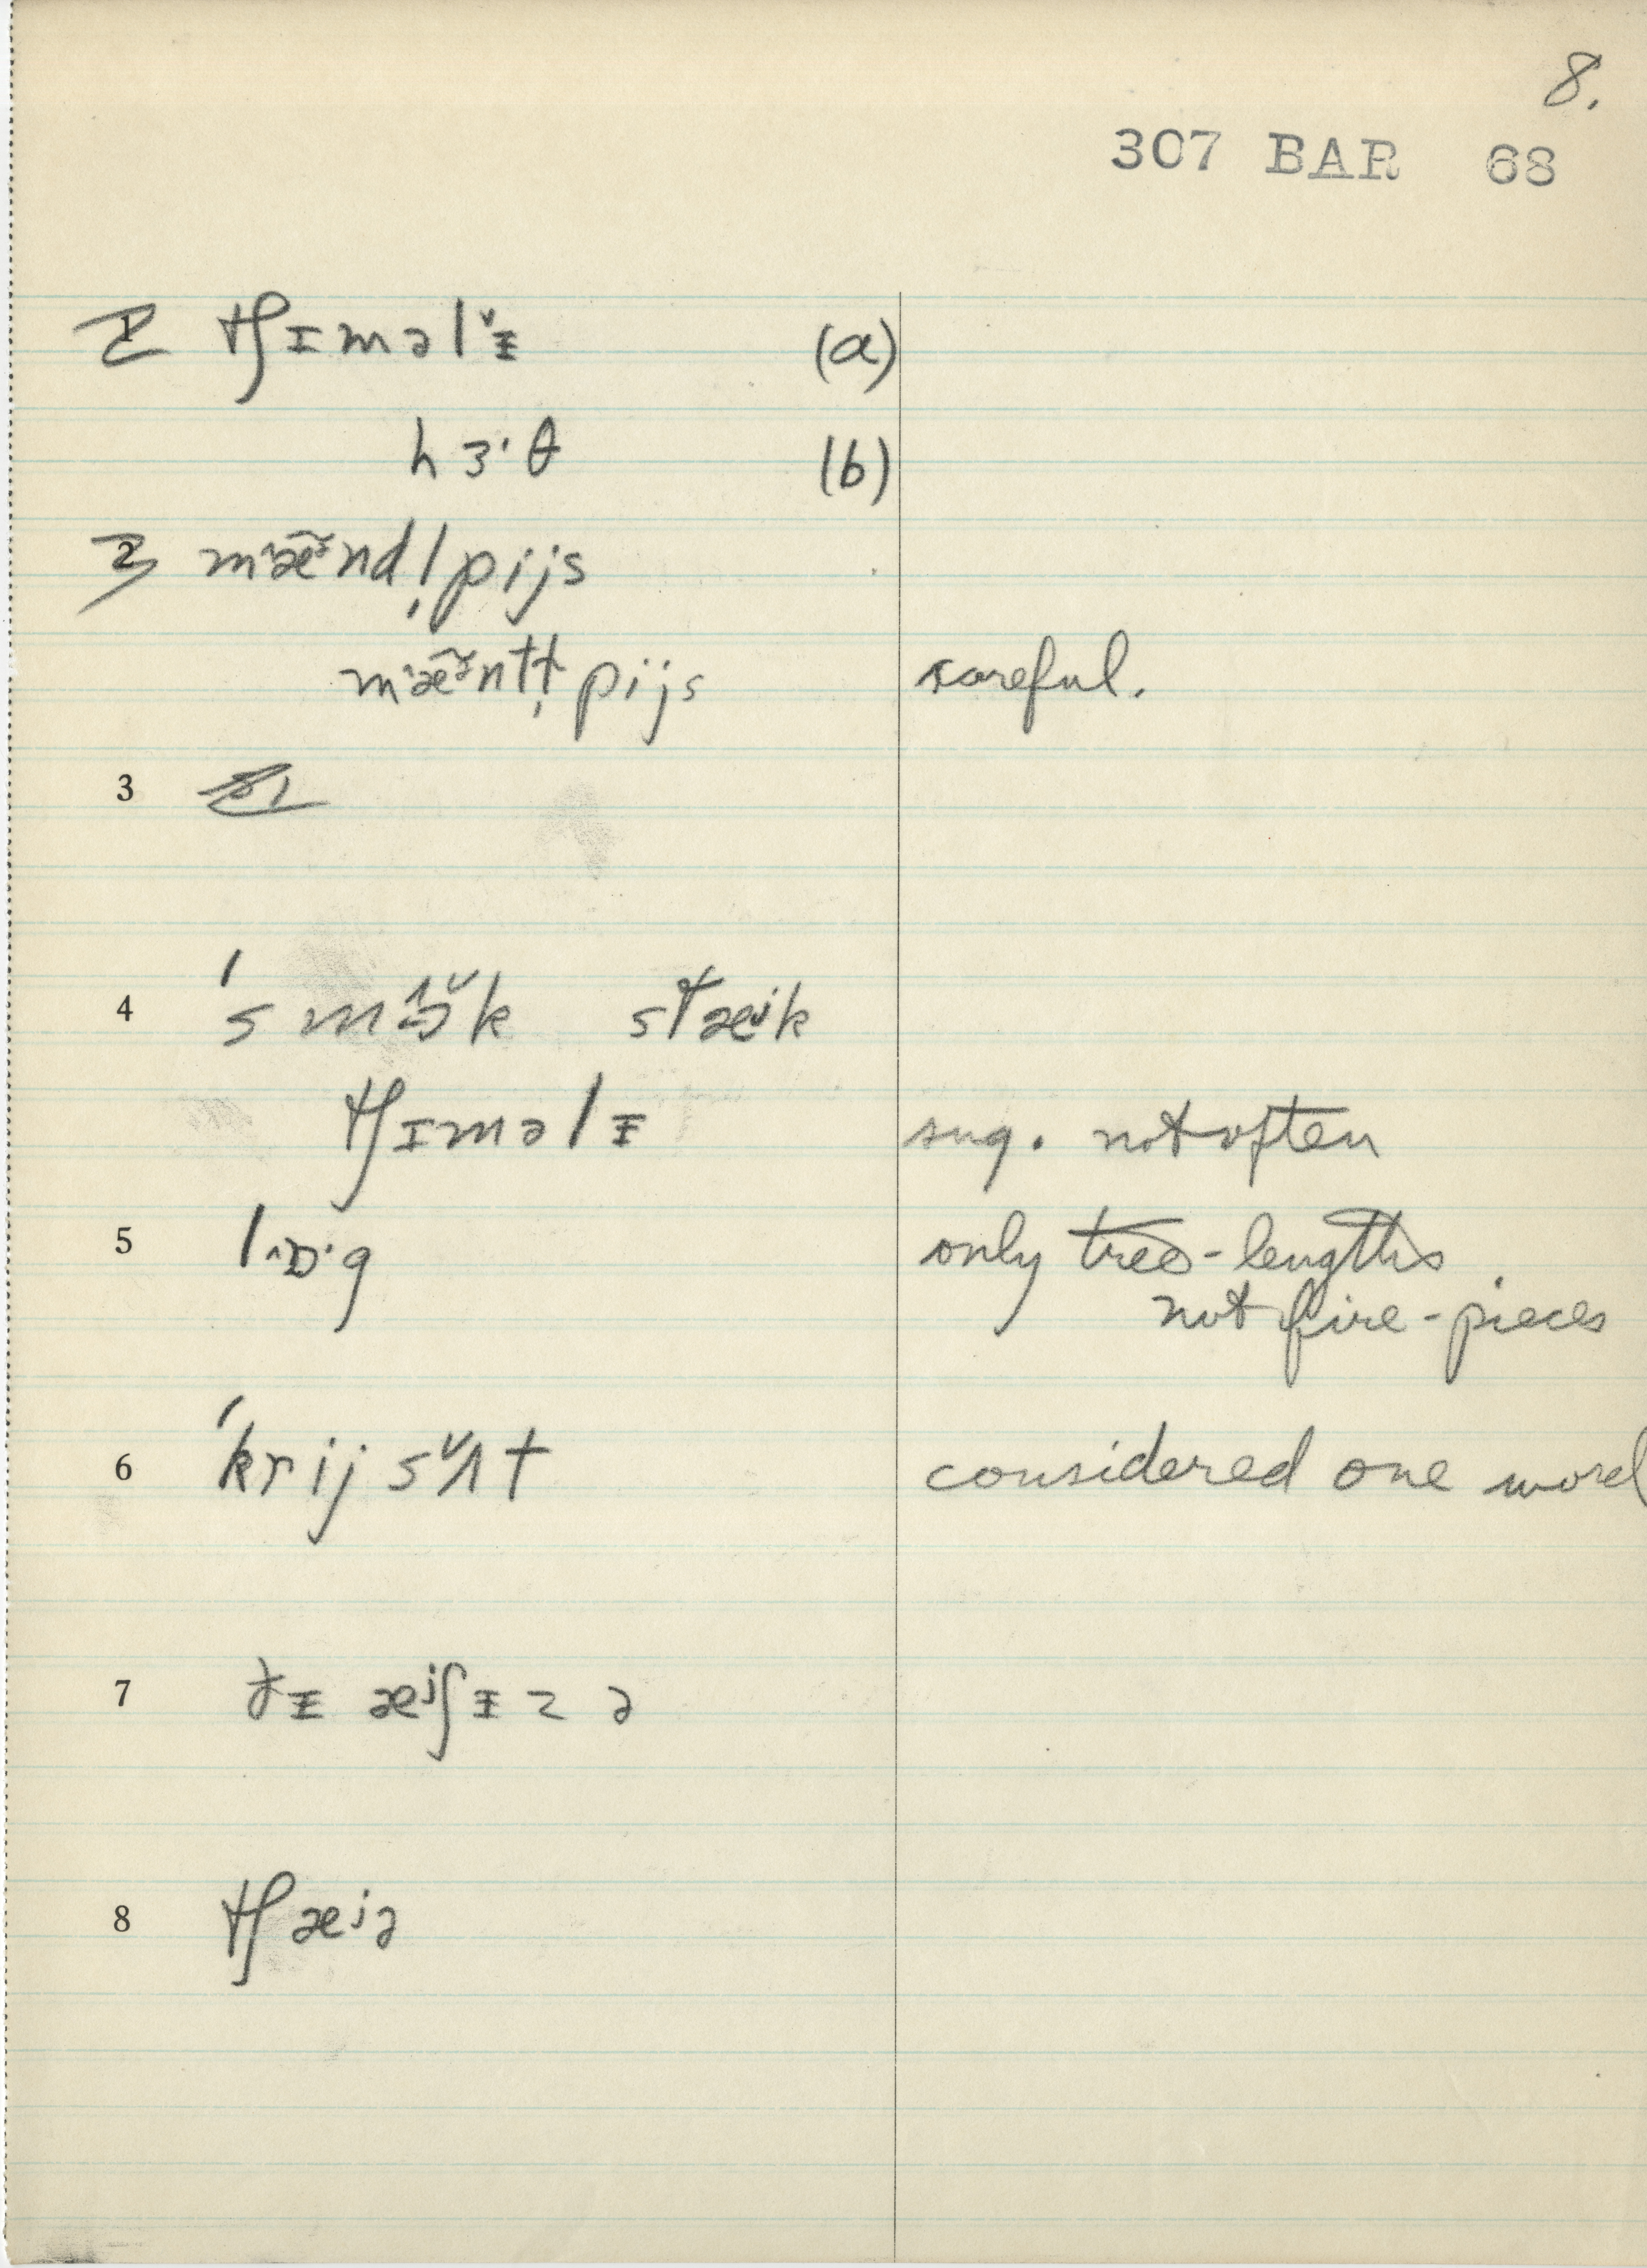 8.
307 BAR 68
2 tʃɪməl˅ᵻ (a)
hɜ˙θ (b)
3 m˄æ̃˞nd!pijs
m˄æ̃˞ntt̩pijs careful.
3
4 ˈsm˄ɔ˅k stæɪk
tʃɪməlᵻ sug. not often
5 l˄ɒ˙g only tree-lengths
not fire-pieces
6 ˈkrijs˅ʌt considered one word
7 ðᵻ æʲʃᵻzə
8 tʃæʲə